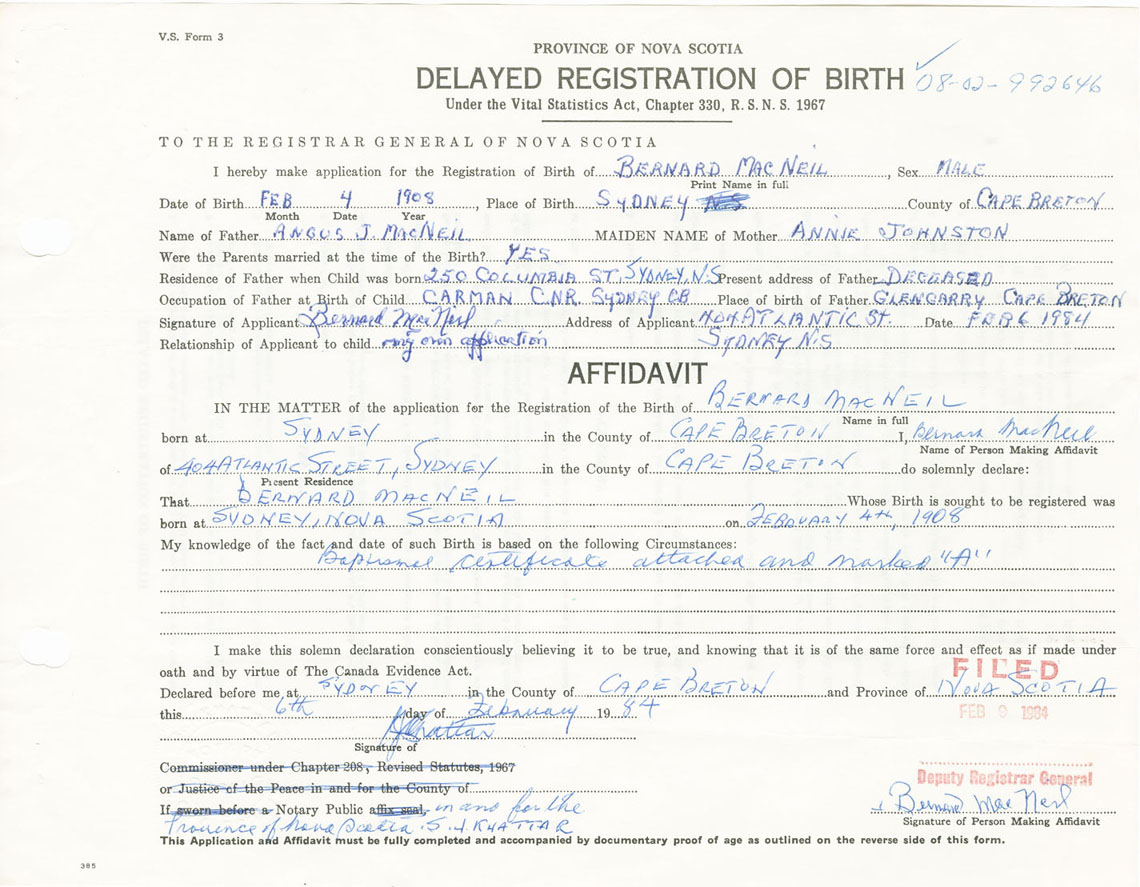 V.S. Form 3
PROVINCE OF NOVA SCOTIA
DELAYED REGISTRATION OF BIRTH 08-02-992646
Under the Vital Statistics Act, Chapter 330, R.S.N.S. 1967
TO THE REGISTRAR GENERAL OF NOVA SCOTIA
I hereby make application for the Registration of Birth of BERNARD MACNEIL, Sex MALE
Print Name in full
Date of Birth FEB 4 1908, Place of Birth SYDNEY N.S. County of CAPE BRETON
Month Date Year
Name of Father ANGUS J. MACNEIL MAIDEN NAME of Mother ANNIE JOHNSTON
Were the Parents married at the time of the Birth? YES
Residence of Father when Child was born 250 COLUMBIA ST. SYDNEY, N.S Present address of Father DECEASED
Occupation of Father at Birth of Child CARMAN C.N.R. SYDNEY CB Place of birth of Father GLENGARRY CAPE BRETON
Signature of Applicant Bernard MacNeil Address of Applicant 404 ATLANTIC St. Date FEB 6 1984
Relationship of Applicant to child my own application SYDNEY N.S
AFFIDAVIT
IN THE MATTER of the application for the Registration of the Birth of BERNARD MACNEIL
Name in full
born at SYDNEY in the County of CAPE BRETON I, Bernard MacNeil
Name of Person Making Affidavit
of 404 ATLANTIC STREET, SYDNEY in the County of CAPE BRETON do solemnly declare:
Present Residence
That BERNARD MACNEIL Whose Birth is sought to be registered was
born at SYDNEY, NOVA SCOTIA on FEBUARY 4th, 1908
My knowledge of the fact and date of such Birth is based on the following Circumstances:
Baptismal certificate attached and marked "A"
I make this solemn declaration conscientiously believing it to be true, and knowing that it is of the same force and effect as if made under
oath and by virtue of The Canada Evidence Act.
FILED
Declared before me at SYDNEY in the County of CAPE BRETON and Province of NOVA SCOTIA
this 6th day of February 1984
FEB 9 1984
Signature of
Commissioner under Chapter 208, Revised Statutes, 1967
or Justice of the Peace in and for the County of
Deputy Registrar General
If sworn before a Notary Public affix seal, in and for the
Bernard MacNeil
Province of Nova Scotia. S.J. KHATTAR
Signature of Person Making Affidavit
This Application and Affidavit must be fully completed and accompanied by documentary proof of age as outlined on the reverse side of this form.
385